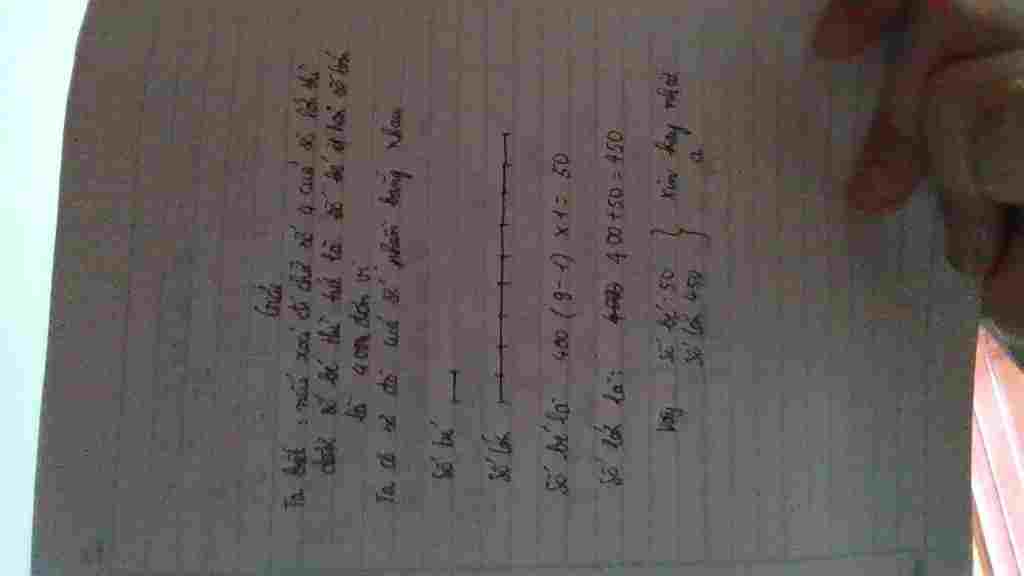 Giải
Ta biết: nếu xoá đi chữ số 4 của số lớn thì
được số bé thì hiệu là số bé số lớn
là 400 đơn vị
Ta có sơ đồ số phần bằng nhau
Số bé
Số lớn
Số bé là 400 (9-1) x 1 = 50
Số lớn là: 400 + 50 = 450
Vậy số bé: 50
Số lớn 450
} xin hay nhất
ạ